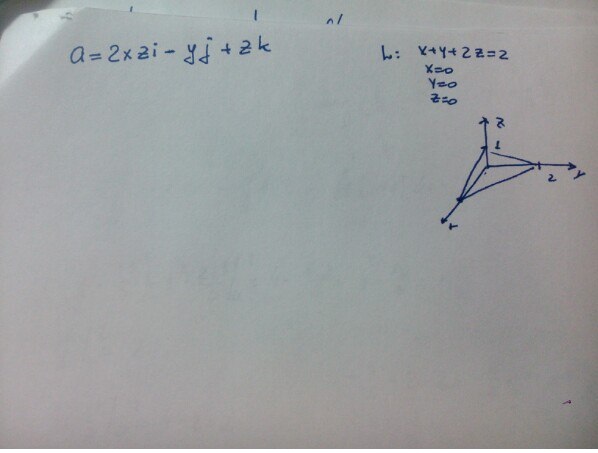 a = 2xzi - yj + zk
L: x+y+2z=2
x=0
y=0
z=0
z
1
2
y
x